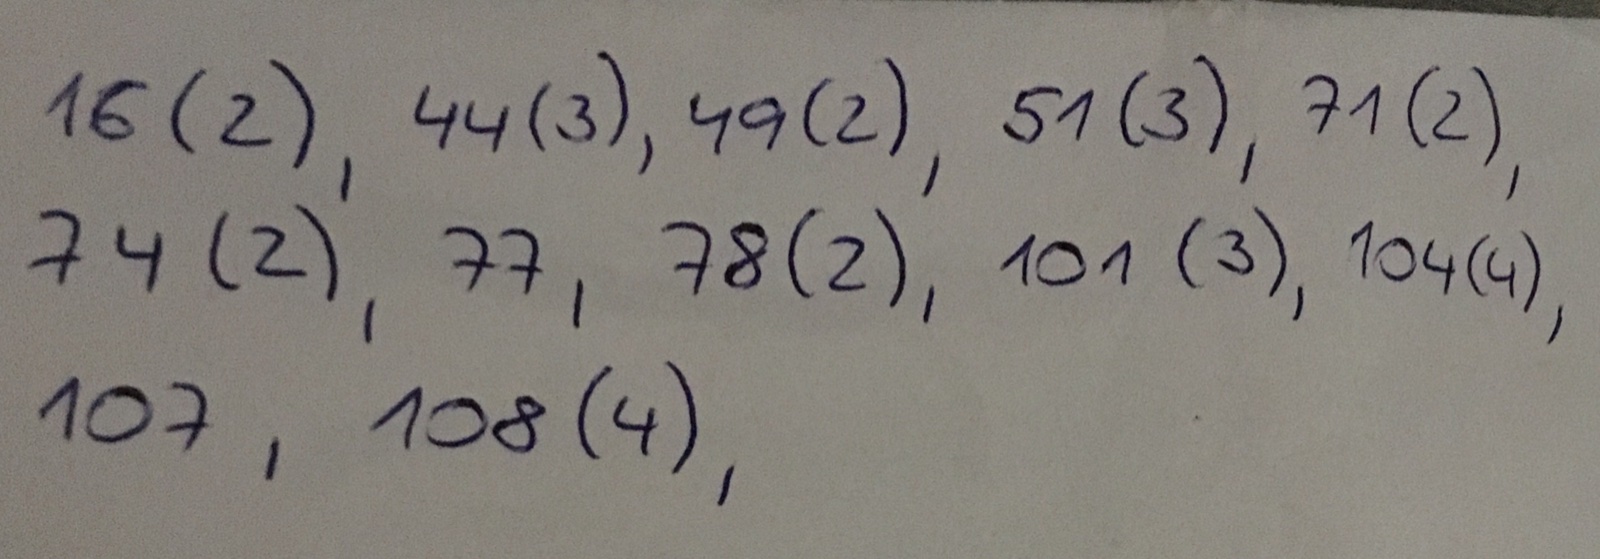 16(2), 44(3), 49(2), 51(3), 71(2),
74(2), 77, 78(2), 101(3), 104(4),
107, 108(4),